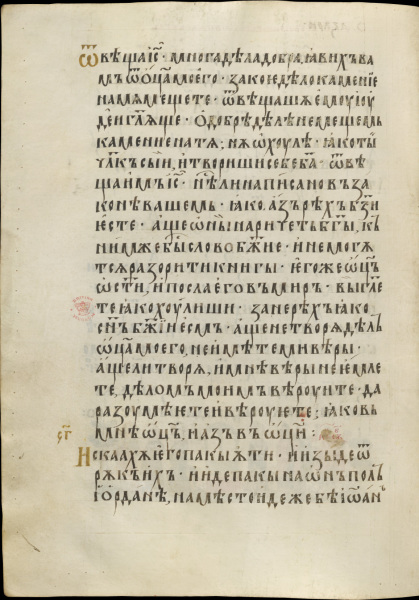 Ѿвѣща і҃с · многа дѣла добра ꙗвихъ ва
мъ ѿ ѡц҃а моего · за кое дѣло камение
на мѧ мещете · ѿвѣщашѧ ємоу ію
деи гл҃ѧще · ѡ добрѣ дѣлѣ не мещемь
камениє на тѧ · нѫ ѡ хоулѣ · ꙗко ты
чл҃къ сыи, и твориши себе б҃а · ѿвѣ
ща имъ і҃с · нѣ ли написано въ за
конѣ вашемь · ꙗко, азъ рѣхъ б҃ѕи
єсте · аще ѡны нариче тъ бг҃ы, къ
нимже бы слово бж҃ие · и не можѧ
тсѧ разорити книгы · єгоже ѡц҃ъ
ѡст҃и, и посла єго въ миръ · вы гл҃є
те ꙗко хоулиши · зане рѣхъ ꙗко
сн҃ъ бж҃їи єсмъ · аще не творѧ дѣлъ
ѡц҃а моего, не имѣте ми вѣры ·
аще ли творѧ, и мнѣ вѣры не ємле
те, дѣломъ моимъ вѣроуите · да
разоумѣєте и вѣроуєте; ꙗко въ
мнѣ ѡц҃ъ, и азъ въ ѡц҃и ·
Искаахѫ єго пакы ѧти · и изыде ѿ
рѫкъ ихъ · и иде пакы на ѡнъ полъ
іѡрданѣ, на мѣсто идеже бѣ іѡан